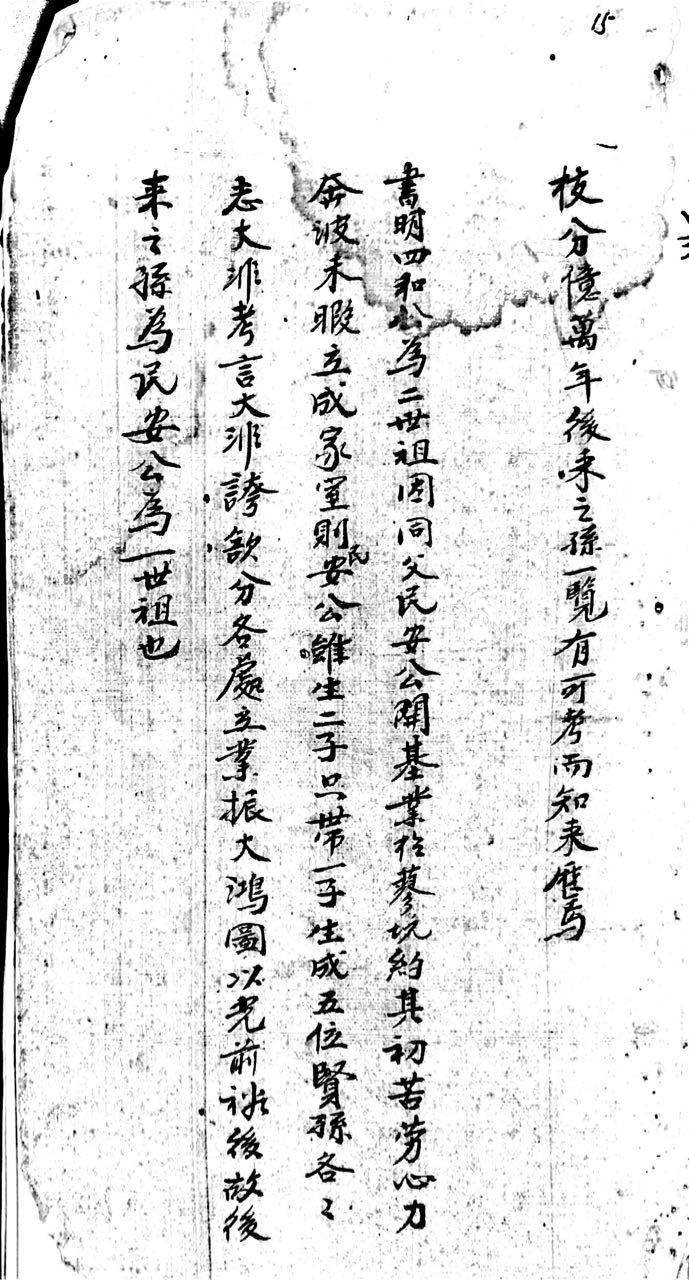 15
枝分億萬年後來之孫一覽有可考而知来歷焉
書明四和公為二世祖因同父民安公開基業於蓼坑約其初苦勞心力
奔波未暇立成家室則民安公雖生二子只帶一子生成五位賢孫各々
志大非考言大非誇欲分各處立業振大鴻圖以光前裕後故後
来之孫為民安公為一世祖也